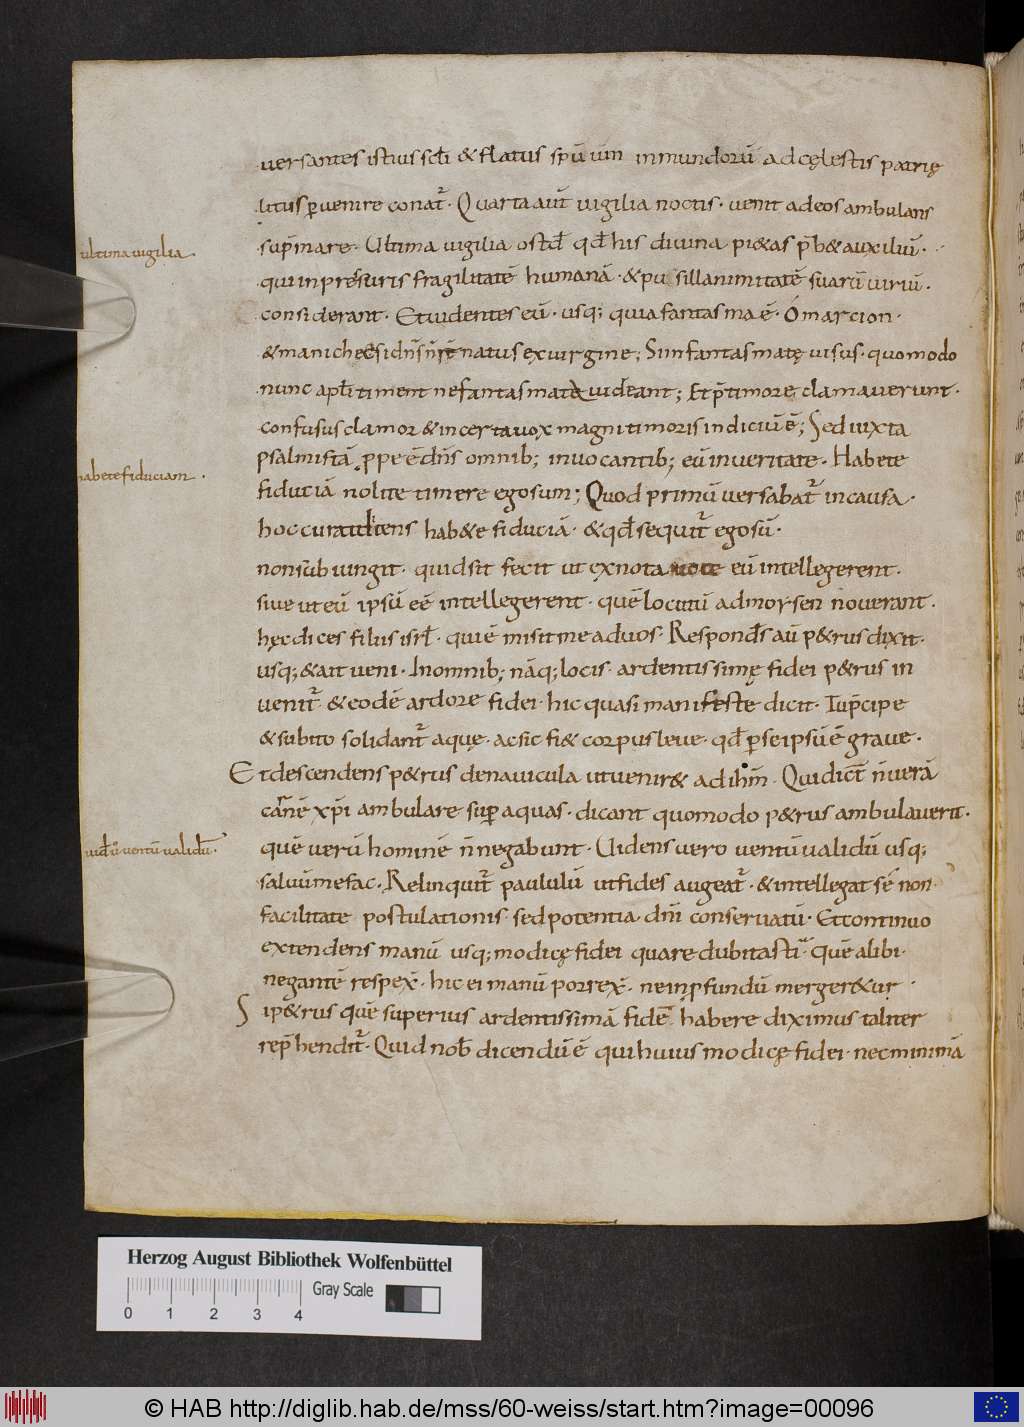 versantes istius scłi & flatus spū uīm inmundorū ad cęlestis patrię
litus p̄venire conat̄. Quarta aut̄ vigilia noctis. venit adeos ambulans
ultima vigilia.
sup̄mare. Ultima vigilia ostd̄ qd̄ his divina pi&as p̄b& auxiliū.
qui inpressuris fragilitatē humanā. & pusillanimitatē suarū viriū.
considerant. Etvidentes eū. usq; quia fantasma ē. O marcion.
& manicheę si dn̄s n̄ ē natus ex virgine; Sin fantasmate visus. quomodo
nunc apłi timent ne fantasmate videant; Et p̄ timore clamaverunt.
confusus clamor & incerta vox magni timoris indiciū ē; Sed iuxta
habete fiduciam.
psalmistā ppe ē dn̄s omnib; invocantib; eū in veritate. Habete
fiduciā nolite timere ego sum; Quod primū versabat̄ in causa.
hoc curat dicens hab&e fiduciā. & qd̄ sequit̄ ego sū.
non subiungit. quid sit fecit ut ex nota voce eū intellegerent.
sive ut eū ipsū eē intellegerent. quē locutū ad moysen noverant.
hęc dices filiis isrł. qui ē misit me ad vos. Respond̄s aū p&rus dixit.
usq; & ait veni. In omnib; nāq; locis. ardentissimę fidei p&rus in
venit̄ & eodē ardore fidei. hic quasi manifeste dicit. Tu p̄cipe
& subito solidant̄ aquę. ac sic fi& corpus leve. qd̄ p̄ se ipsū ē grave.
Et descendens p&rus de navicula ut venir& ad ihm̄. Qui dic̄t n̄ verā
carnē xp̄i ambulare sup̄ aquas. dicant quomodo p&rus ambulaverit.
vid̄. ventū validū.
quē verū hominē n̄ negabunt. Videns vero ventū validū usq;
salvū me fac. Relinquit̄ paululū ut fides augeat̄. & intellegat sē non
facilitate postulationis. sed potentia dn̄i conservatū. Et continuo
extendens manū usq; modicę fidei quare dubitasti. Quē alibi.
negantē respex̄. hic ei manū porrex̄. ne in pfundū merger&ur.
Si p&rus quē superius ardentissimā fidē habere diximus taliter
rep̄hendit̄. Quid nob̄ dicendū ē qui huius modicę fidei. nec minimā
Herzog August Bibliothek Wolfenbüttel
Gray Scale
0 1 2 3 4
© HAB http://diglib.hab.de/mss/60-weiss/start.htm?image=00096